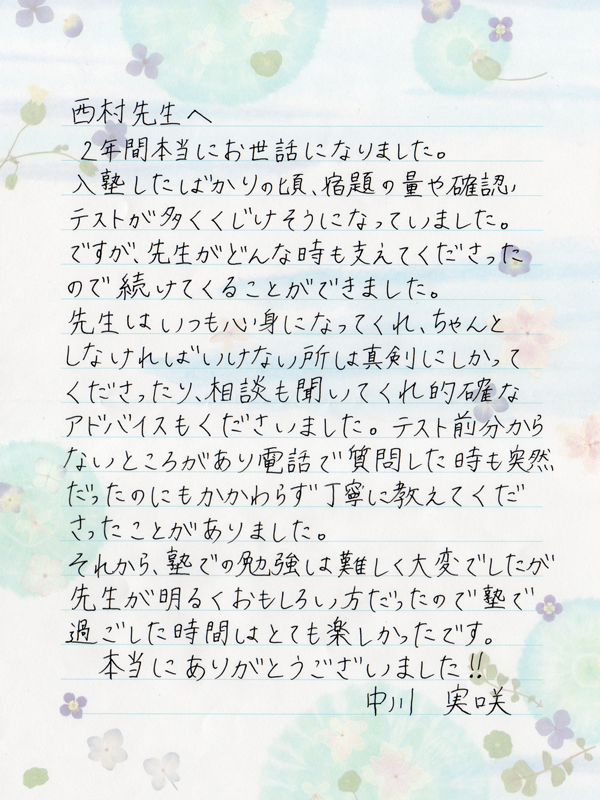 西村先生へ
2年間本当にお世話になりました。
入塾したばかりの頃、宿題の量や確認
テストが多くくじけそうになっていました。
ですが、先生がどんな時も支えてくださった
ので続けてくることができました。
先生はいつも心身になってくれ、ちゃんと
しなければいけない所は真剣にしかって
くださったり、相談も聞いてくれ的確な
アドバイスもくださいました。テスト前分から
ないところがあり電話で質問した時も突然
だったのにもかかわらず丁寧に教えてくだ
さったことがありました。
それから、塾での勉強は難しく大変でしたが
先生が明るくおもしろい方だったので塾で
過ごした時間はとても楽しかったです。
本当にありがとうございました!!
中川 実咲